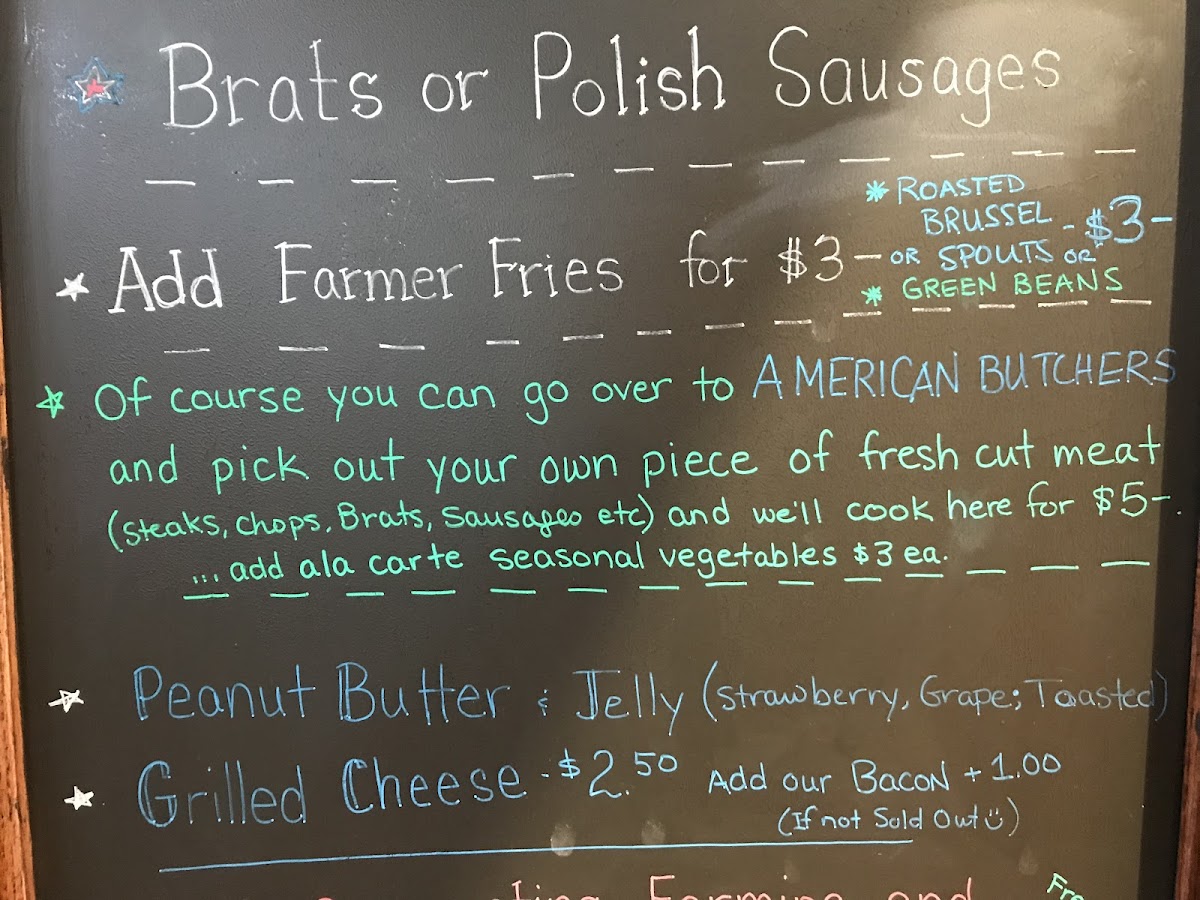 Brats or Polish Sausages
Add Farmer Fries for $3 -
* ROASTED
BRUSSEL - $3-
OR SPOUTS OR
* GREEN BEANS
Of course you can go over to AMERICAN BUTCHERS
and pick out your own piece of fresh cut meat
(steaks, chops, Brats, Sausages etc) and we'll cook here for $5-.
... add ala carte seasonal vegetables $3 ea.
Peanut Butter & Jelly (Strawberry, Grape; Toasted)
Grilled Cheese - $2.50 Add our Bacon + 1.00
(If not Sold Out)
Farming and